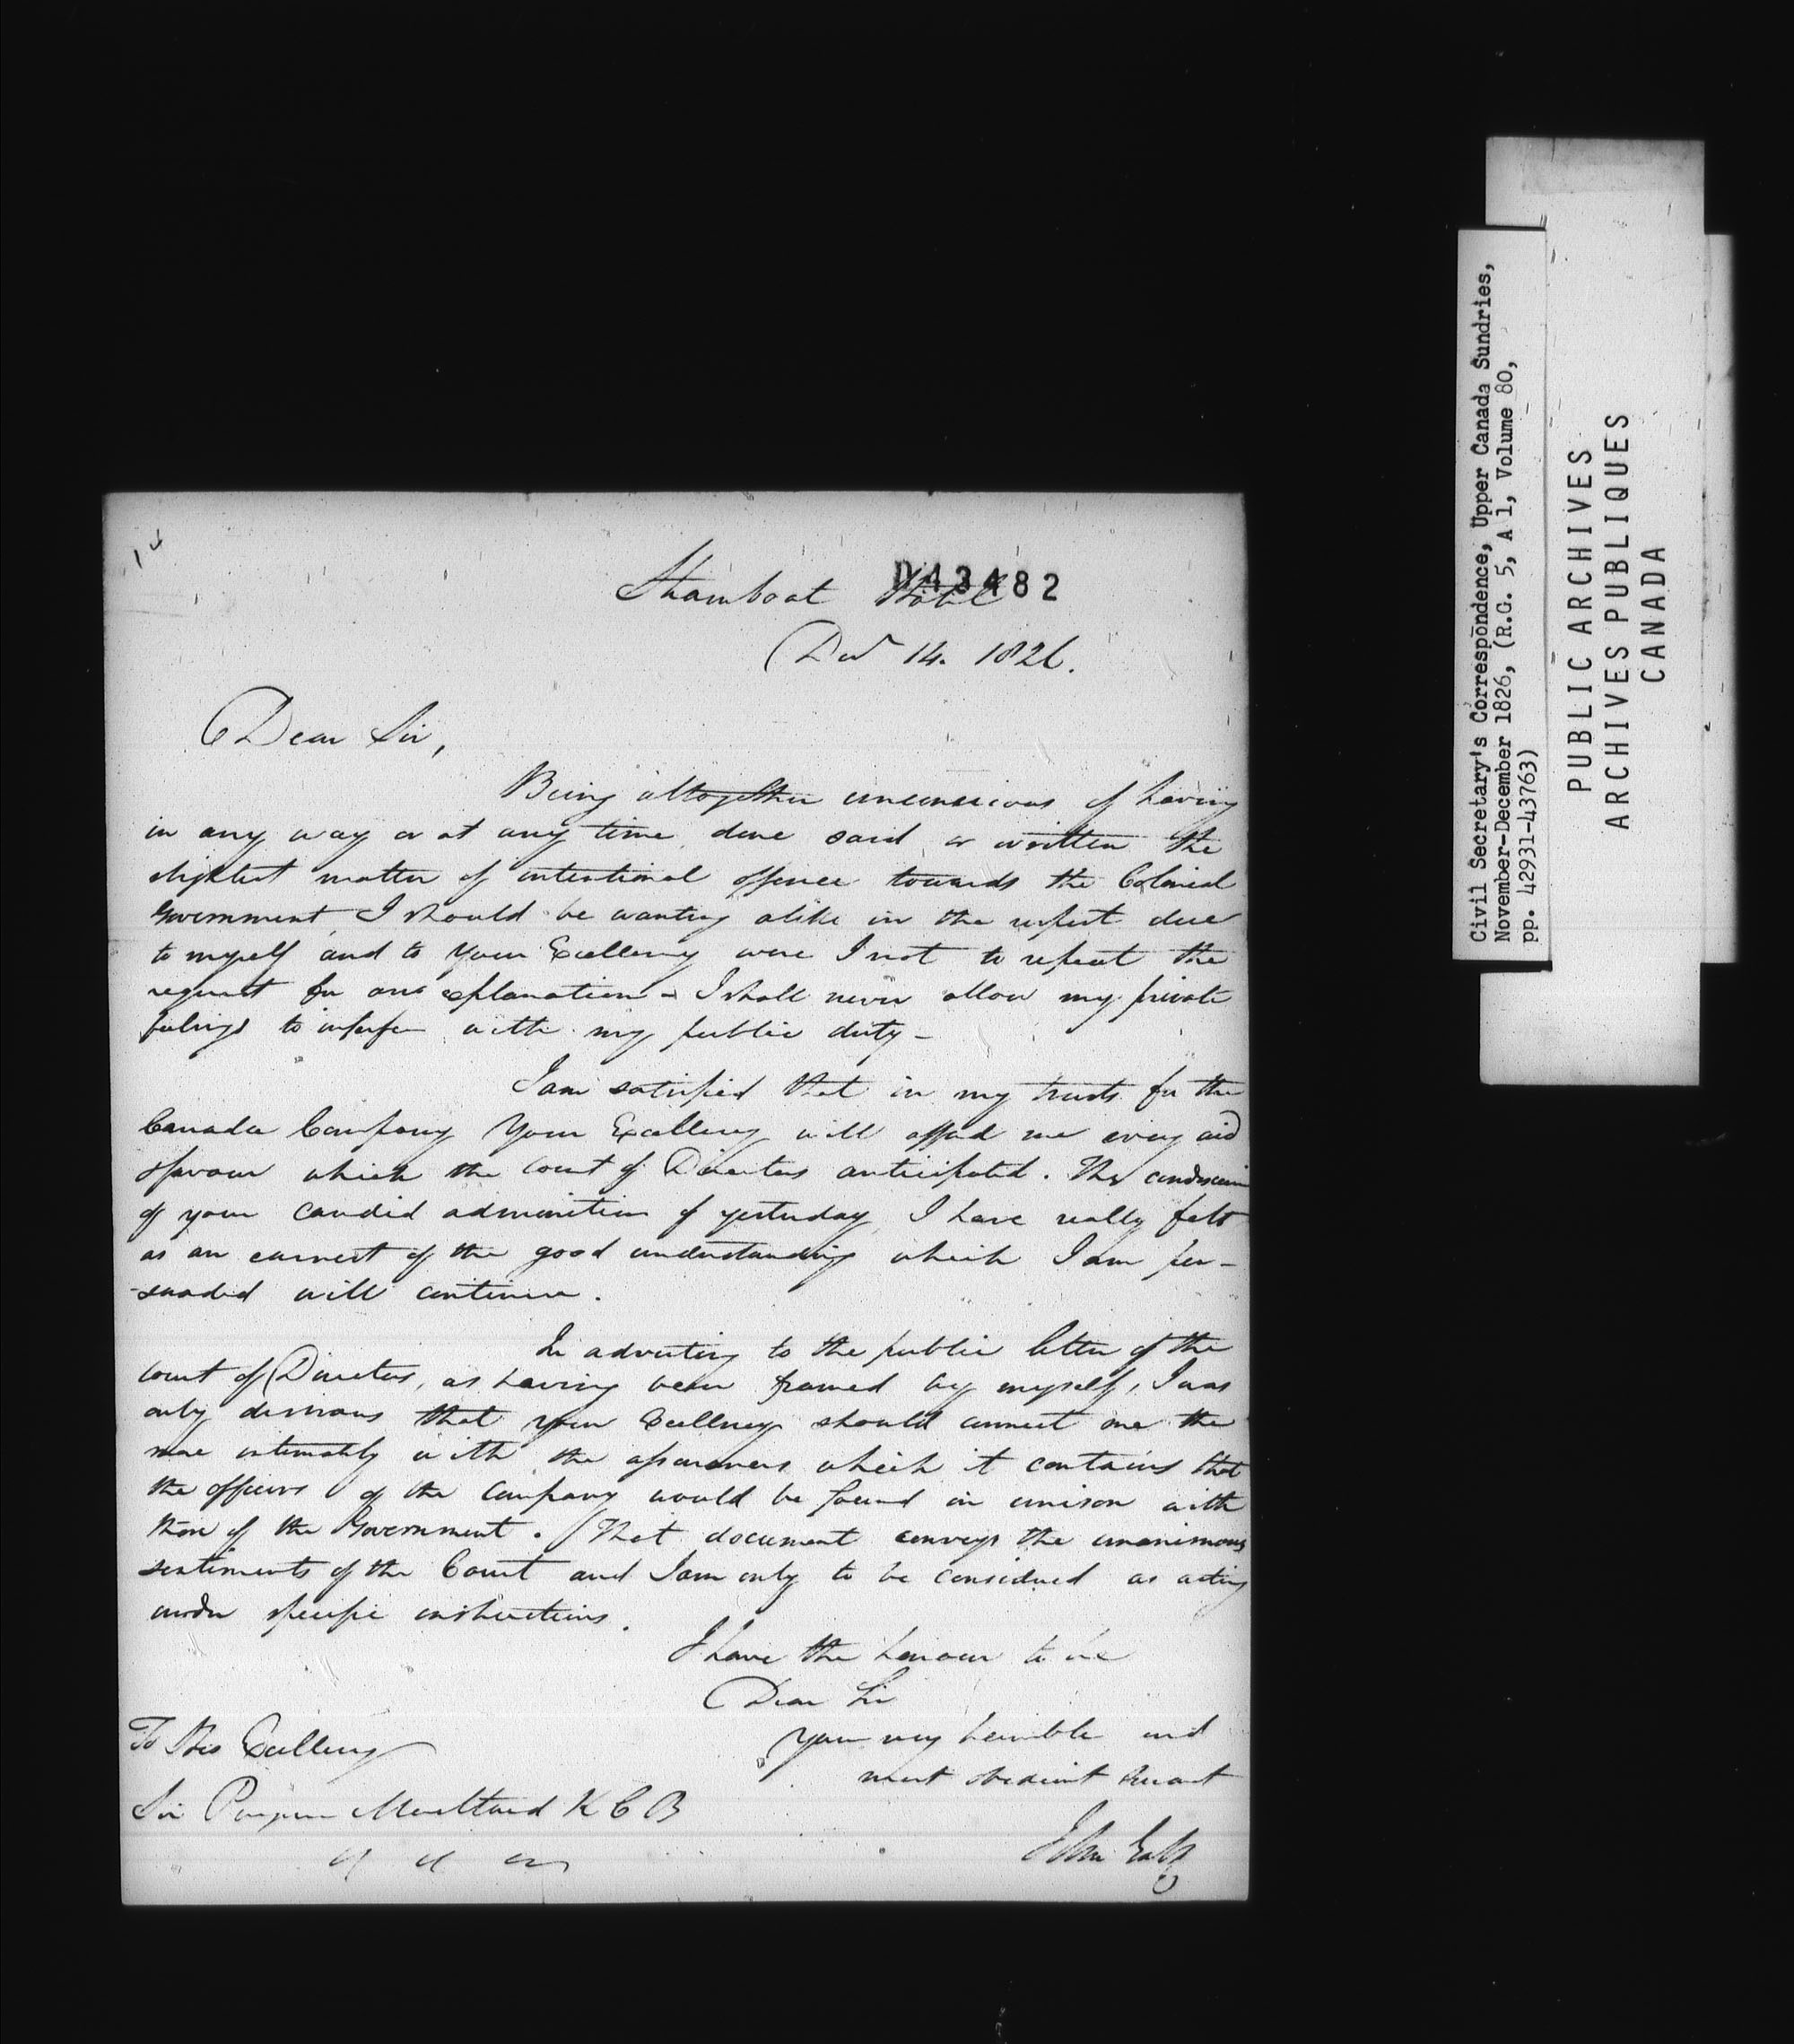 14
D43482
Steamboat Hotel
Decr 14. 1826.
Dear Sir,
Being altogether unconscious of having
in any way or at any time, done said, or written the
slightest matter of intentional offence towards the Colonial
Government I should be wanting alike in the respect due
to myself and to Your Excellency were I not to repeat the
request for an explanation - I shall never allow my private
feelings to interfere with my public duty -
I am satisfied that in my trusts for the
Canada Company Your Excellency will afford me every aid
& favour which the Court of Directors anticipated. The condescension
of your candid admonition of yesterday I have really felt
as an earnest of the good understanding which I am per-
-suaded will continue.
In adverting to the public letter of the
Court of Directors, as having been framed by myself, I was
only desirous that your Excellency should connect me the
more intimately with the assurances which it contains that
the officers of the Company would be found in unison with
those of the Government. That document conveys the unanimous
sentiments of the Court and I am only to be considered as acting
under specific instructions.
I have the honour to be
Dear Sir
Your very humble and
most obedient servant
John Galt
To His Excellency
Sir Peregrine Maitland K C B
Civil Secretary's Correspondence, Upper Canada Sundries,
November-December 1826, (R.G. 5, A 1, Volume 80,
pp. 42931-43763)
PUBLIC ARCHIVES
ARCHIVES PUBLIQUES
CANADA